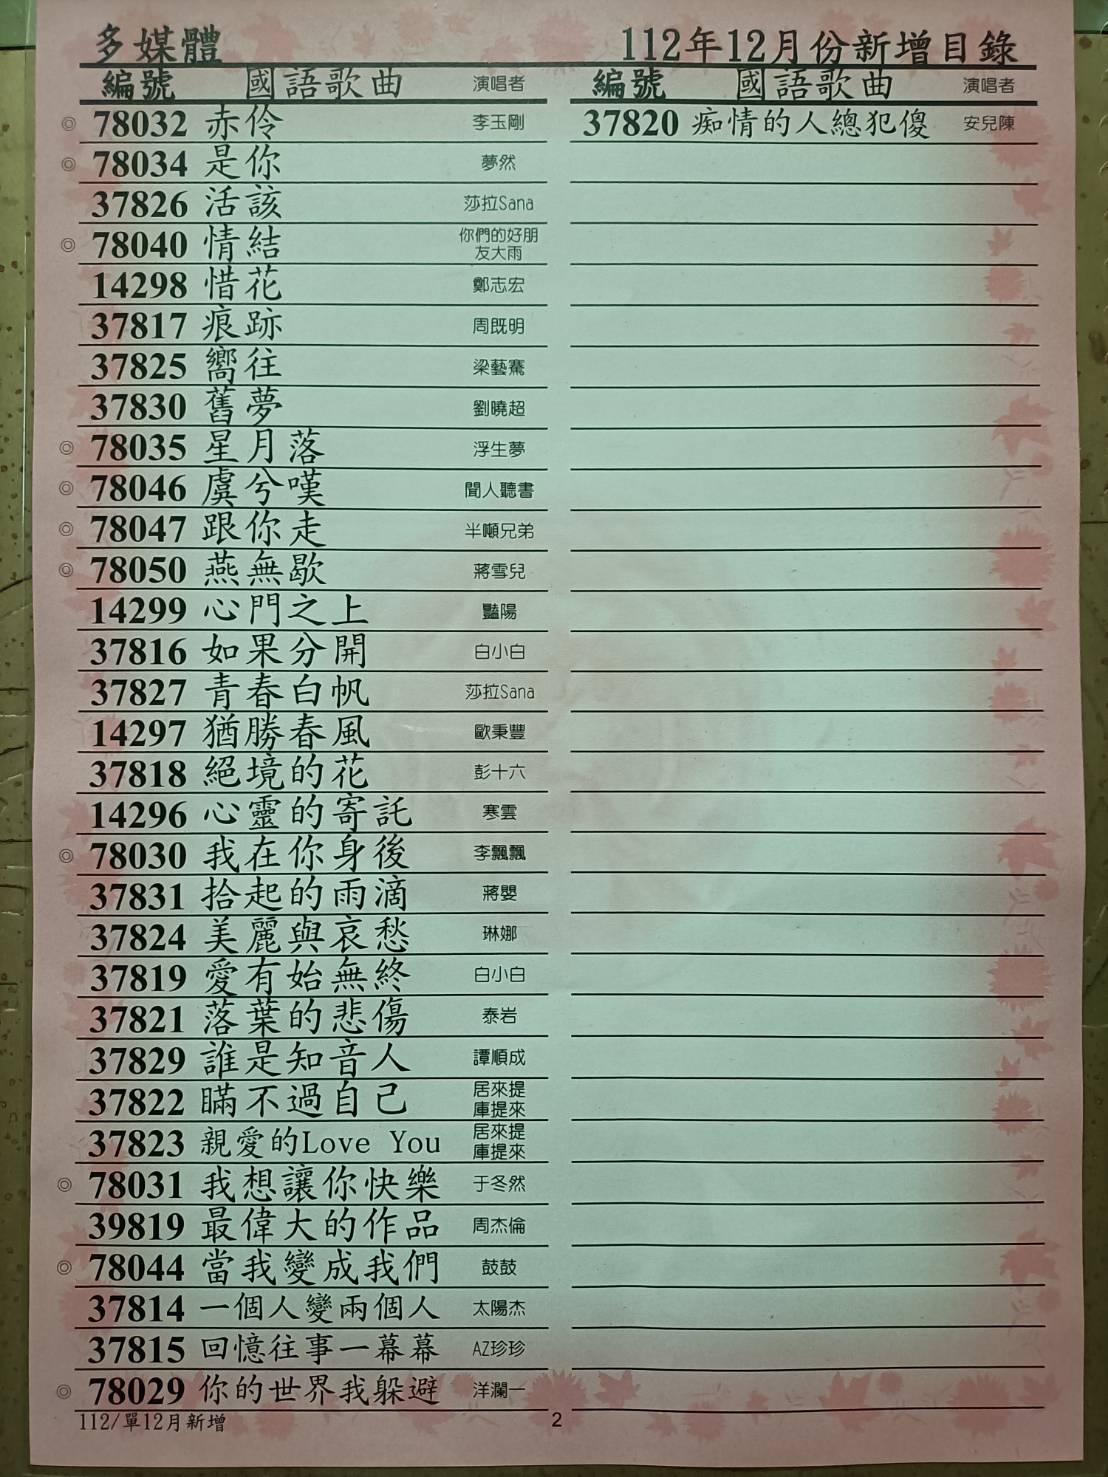 多媒體 112年12月份新增目錄
編號 國語歌曲 演唱者 編號 國語歌曲 演唱者
◎ 78032 赤伶 李玉剛
◎ 78034 是你 夢然
37826 活該 莎拉Sana
◎ 78040 情結 你們的好朋友大雨
14298 惜花 鄭志宏
37817 痕跡 周既明
37825 嚮往 梁藝騫
37830 舊夢 劉曉超
◎ 78035 星月落 浮生夢
◎ 78046 虞兮嘆 聞人聽書
◎ 78047 跟你走 半噸兄弟
◎ 78050 燕無歇 蔣雪兒
14299 心門之上 豔陽
37816 如果分開 白小白
37827 青春白帆 莎拉Sana
14297 猶勝春風 歐秉豐
37818 絕境的花 彭十六
14296 心靈的寄託 寒雲
◎ 78030 我在你身後 李飄飄
37831 拾起的雨滴 蔣嬰
37824 美麗與哀愁 琳娜
37819 愛有始無終 白小白
37821 落葉的悲傷 泰岩
37829 誰是知音人 譚順成
37822 瞞不過自己 居來提庫提來
37823 親愛的Love You 居來提庫提來
◎ 78031 我想讓你快樂 于冬然
39819 最偉大的作品 周杰倫
◎ 78044 當我變成我們 鼓鼓
37814 一個人變兩個人 太陽杰
37815 回憶往事一幕幕 AZ珍珍
◎ 78029 你的世界我躲避 洋瀾一
37820 痴情的人總犯傻 安兒陳
112/單12月新增
2